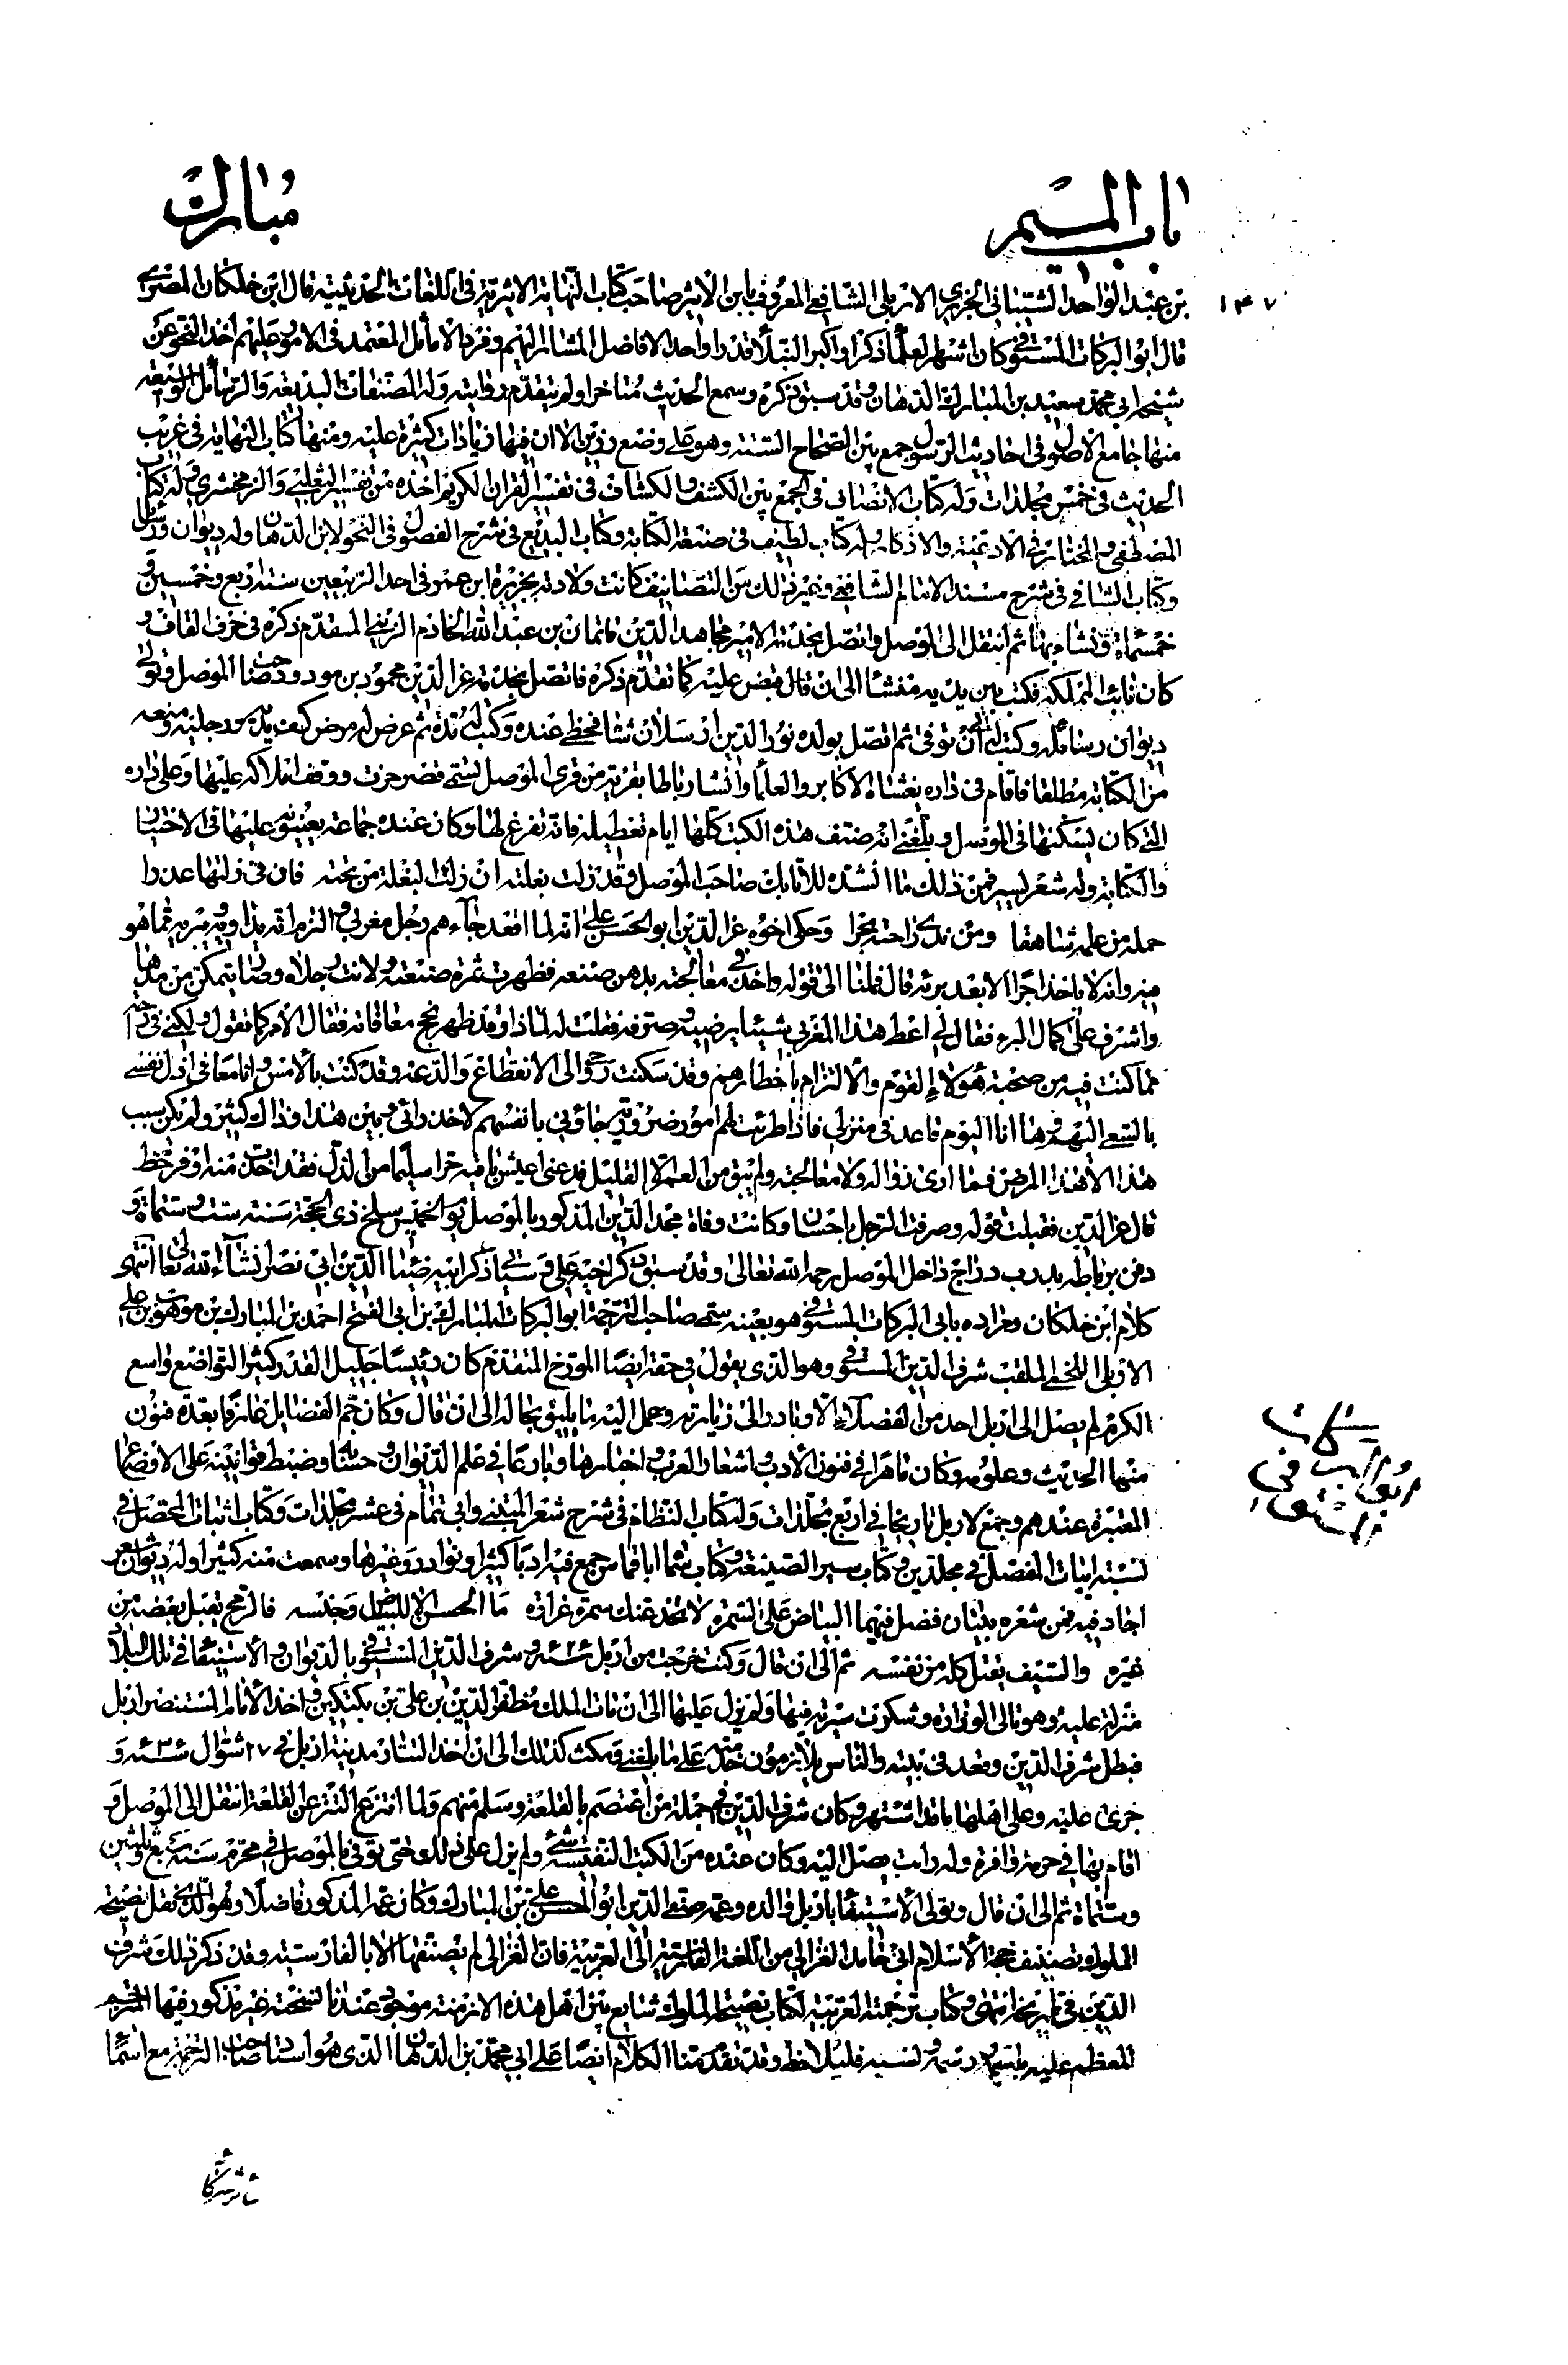 باب الميم
مبارك
١٤٧
بن عبد الواحد الشيباني الجزري الاربلي الشافعي المعروف بابن الاثير صاحب كتاب النهاية الاثيرية في اللغات الحديثية قال ابن خلكان المصري
قال ابو البركات المستوفي كان اشهر العلماء ذكرا واكبر النبلاء قدرا واحد الافاضل المشار اليهم وفرد الاماثل المعتمد في الامور عليهم اخذ النحو عن
شيخه ابي محمد سعيد بن المبارك الدهان وقد سبق ذكره وسمع الحديث متاخرا ولم يتقدم روايته وله المصنفات البديعة والرسائل الوسيعة
منها جامع الاصول في احاديث الرسول جمع بين الصحاح الستة وهو على وضع رزين الا ان فيها زيادات كثيرة عليه ومنها كتاب النهاية في غريب
الحديث في خمس مجلدات وله كتاب الانصاف في الجمع بين الكشف والكشاف في تفسير القران الكريم اخذه من تفسير الثعلبي والزمخشري وله كتاب
المصطفى والمختار في الادعية والاذكار وله كتاب لطيف في صنعة الكتابة وكتاب البديع في شرح الفصول في النحو لابن الدهان وله ديوان رسائل
وكتاب الشافي في شرح مسند الامام الشافعي وغير ذلك من التصانيف كانت ولادته بجزيرة ابن عمر في احد الربيعين سنة اربع وخمسين و
خمسمائة ونشاء بها ثم انتقل الى الموصل واتصل بخدمة الامير مجاهد الدين قايمان بن عبد الله الخادم الزيني المتقدم ذكره في حرف القاف و
كان نائب المملكة فكتب بين يديه منشئا الى ان قال قبض عليه كما تقدم ذكره فاتصل بخدمة عز الدين محمود بن مودود صاحب الموصل وتولى
ديوان رسائله وكتب له الى ان توفي ثم اتصل بولده نور الدين ارسلان شاه فحظي عنده وكتب له مدة ثم عرض له مرض كف يديه ورجليه ومنعه
من الكتابة مطلقا فاقام في داره يغشاه الاكابر والعلماء وانشا رباطا بقرية من قرى الموصل تسمى قصر حرب ووقف املاكه عليها وعلى داره
التي كان يسكنها في الموصل وبلغني انه صنف هذه الكتب كلها ايام تعطيله فانه تفرغ لها وكان عنده جماعة يعينونه عليها في الاختيار
والكتابة وله شعر يسير فمن ذلك ما انشده للاتابك صاحب الموصل وقد زلت بغلته ان زلت البغلة من تحته فان في زلتها عذرا
حملها من علمه شاهقا ومن ندى راحته بحرا وحكى اخوه عز الدين ابو الحسن علي انه لما اقعد جاءهم رجل مغربي والتزم انه يداويه ويبريه مما هو
فيه وانه لا ياخذ اجرا الا بعد برئه قال فملنا الى قوله واخذ في معالجته بدهن صنعه فظهرت ثمرة صنعته ولانت رجلاه وصار يتمكن من مدهما
واشرف على كمال البرء فقال لي اعط هذا المغربي شيئا يرضيه وصرفه فقلت له لماذا وقد ظهر نجح معافاته فقال الامر كما تقول ولكني في راحة
مما كنت فيه من صحبة هؤلاء القوم والالتزام باخطارهم وقد سكنت روحي الى الانقطاع والدعة وقد كنت بالامس وانا معافى اذل نفسي
بالسعي اليهم وها انا اليوم قاعد في منزلي فاذا طرئت لهم امور ضرورية جاؤني بانفسهم لاخذ رائي وبين هذا وذاك كثير ولم يكن سبب
هذا الا هذا المرض فما ارى زواله ولا معالجته ولم يبق من العمر الا القليل فدعني اعيش باقيه حرا سليما من الذل فقد اخذت منه اوفر حظ
قال عز الدين فقبلت قوله وصرفت الرجل باحسان وكانت وفاة مجد الدين المذكور بالموصل يوم الخميس سلخ ذي الحجة سنة ست وستمائة و
دفن برباطه بدرب دراج داخل الموصل رحمه الله تعالى وقد سبق ذكر اخيه علي وسياتي ذكر اخيه ضياء الدين ابي نصر انشاء الله تعالى انتهى
كلام ابن خلكان ومراده بابي البركات المستوفي هو بعينه سمي صاحب الترجمة ابو البركات المبارك بن ابي الفتح احمد بن المبارك بن موهوب بن علي
الاربلي اللخمي الملقب شرف الدين المستوفي وهو الذي يقول في حقه ايضا المورخ المتقدم كان رئيسا جليل القدر كثير التواضع واسع
الكرم لم يصل الى اربل احد من الفضلاء الا وبادر الى زيارته وحمل اليه ما يليق بحاله الى ان قال وكان جم الفضايل عارفا بعدة فنون
منها الحديث وعلومه وكان ماهرا في فنون الادب واشعار العرب واخبارها وبارعا في علم الديوان وحسابه وضبط قوانينه على الاوضاع
المعتبرة عندهم وجمع لاربل تاريخا في اربع مجلدات وله كتاب النظام في شرح شعر المتنبي وابي تمام في عشر مجلدات وكتاب اثبات المحصل في
نسبة ابيات المفصل في مجلدين وكتاب سير الصنيعة وكتاب سماه ابا قماش جمع فيه ادبا كثيرا ونوادر وغيرها وسمعت منه كثيرا وله ديوان شعر
اجاد فيه فمن شعره بيتان فضل فيهما البياض على السمرة لا تخدعنك سمرة غرارة ما الحسن الا للبياض وجنسه فالرمح يقتل بعضه من
غيره والسيف يقتل كله من نفسه ثم الى ان قال وكنت خرجت من اربل سنة وشرف الدين المستوفي بالديوان والاستيفاء في تلك البلاد
منزلة عليه وهو تالي الوزارة وشكرت سيرته فيها ولم يزل عليها الى ان مات الملك مظفر الدين بن علي بن بكتكين واخذ الامام المستنصر اربل
فبطل شرف الدين وقعد في بيته والناس يلازمون خدمته على ما بلغني ومكث كذلك الى ان اخذ التتار مدينة اربل في ٢٧ شوال و
جرى عليه وعلى اهلها ما قد اشتهر وكان شرف الدين في جملة من اعتصم بالقلعة وسلم منهم ولما انتزع التتر عن القلعة انتقل الى الموصل و
اقام بها في حرمة وافرة وله راتب يصل اليه وكان عنده من الكتب النفيسة شيء ولم يزل على ذلك حتى توفي بالموصل في محرم سنة سبع وثلثين
وستمائة ثم الى ان قال وتولى الاستيفاء باربل والده وعمه صفي الدين ابو الحسن علي بن المبارك وكان عمه المذكور فاضلا وهو الذي نقل نصيحة
الملوك تصنيف حجة الاسلام ابي حامد الغزالي من اللغة الفارسية الى العربية فان الغزالي لم يصنفها الا بالفارسية وقد ذكر ذلك شرف
الدين في تاريخه انتهى وكتاب ترجمة العربية لكتاب نصيحة الملوك شايع بين اهل هذه الازمنة موجود عندنا نسخته غير مذكور فيها المترجم
المعظم عليه رسمه ونسبه فليلاحظ وقد تقدمنا الكلام ايضا على ابي محمد بن الدهان الذي هو استاد صاحب الترجمة مع اسماء
ابو البركات
المستوفي